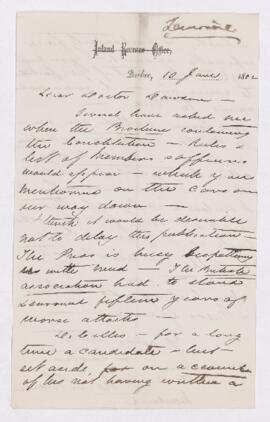 Lemoine
Inland Revenue Office,
Quebec, 10 June 1882
Dear Doctor Dawson -
Several have asked me
when the Brochure containing
the Constitution - Rules &
list of Members & officers
would appear - which you
mentioned on the cars on
our way down -
I think it would be desirable
not to delay this publication -
The Press is busy
in the mud - The British
association had to stand
several fifteen years of
worse attacks -
- for a long
time a candidate - but
set aside, on account
of his not having written a